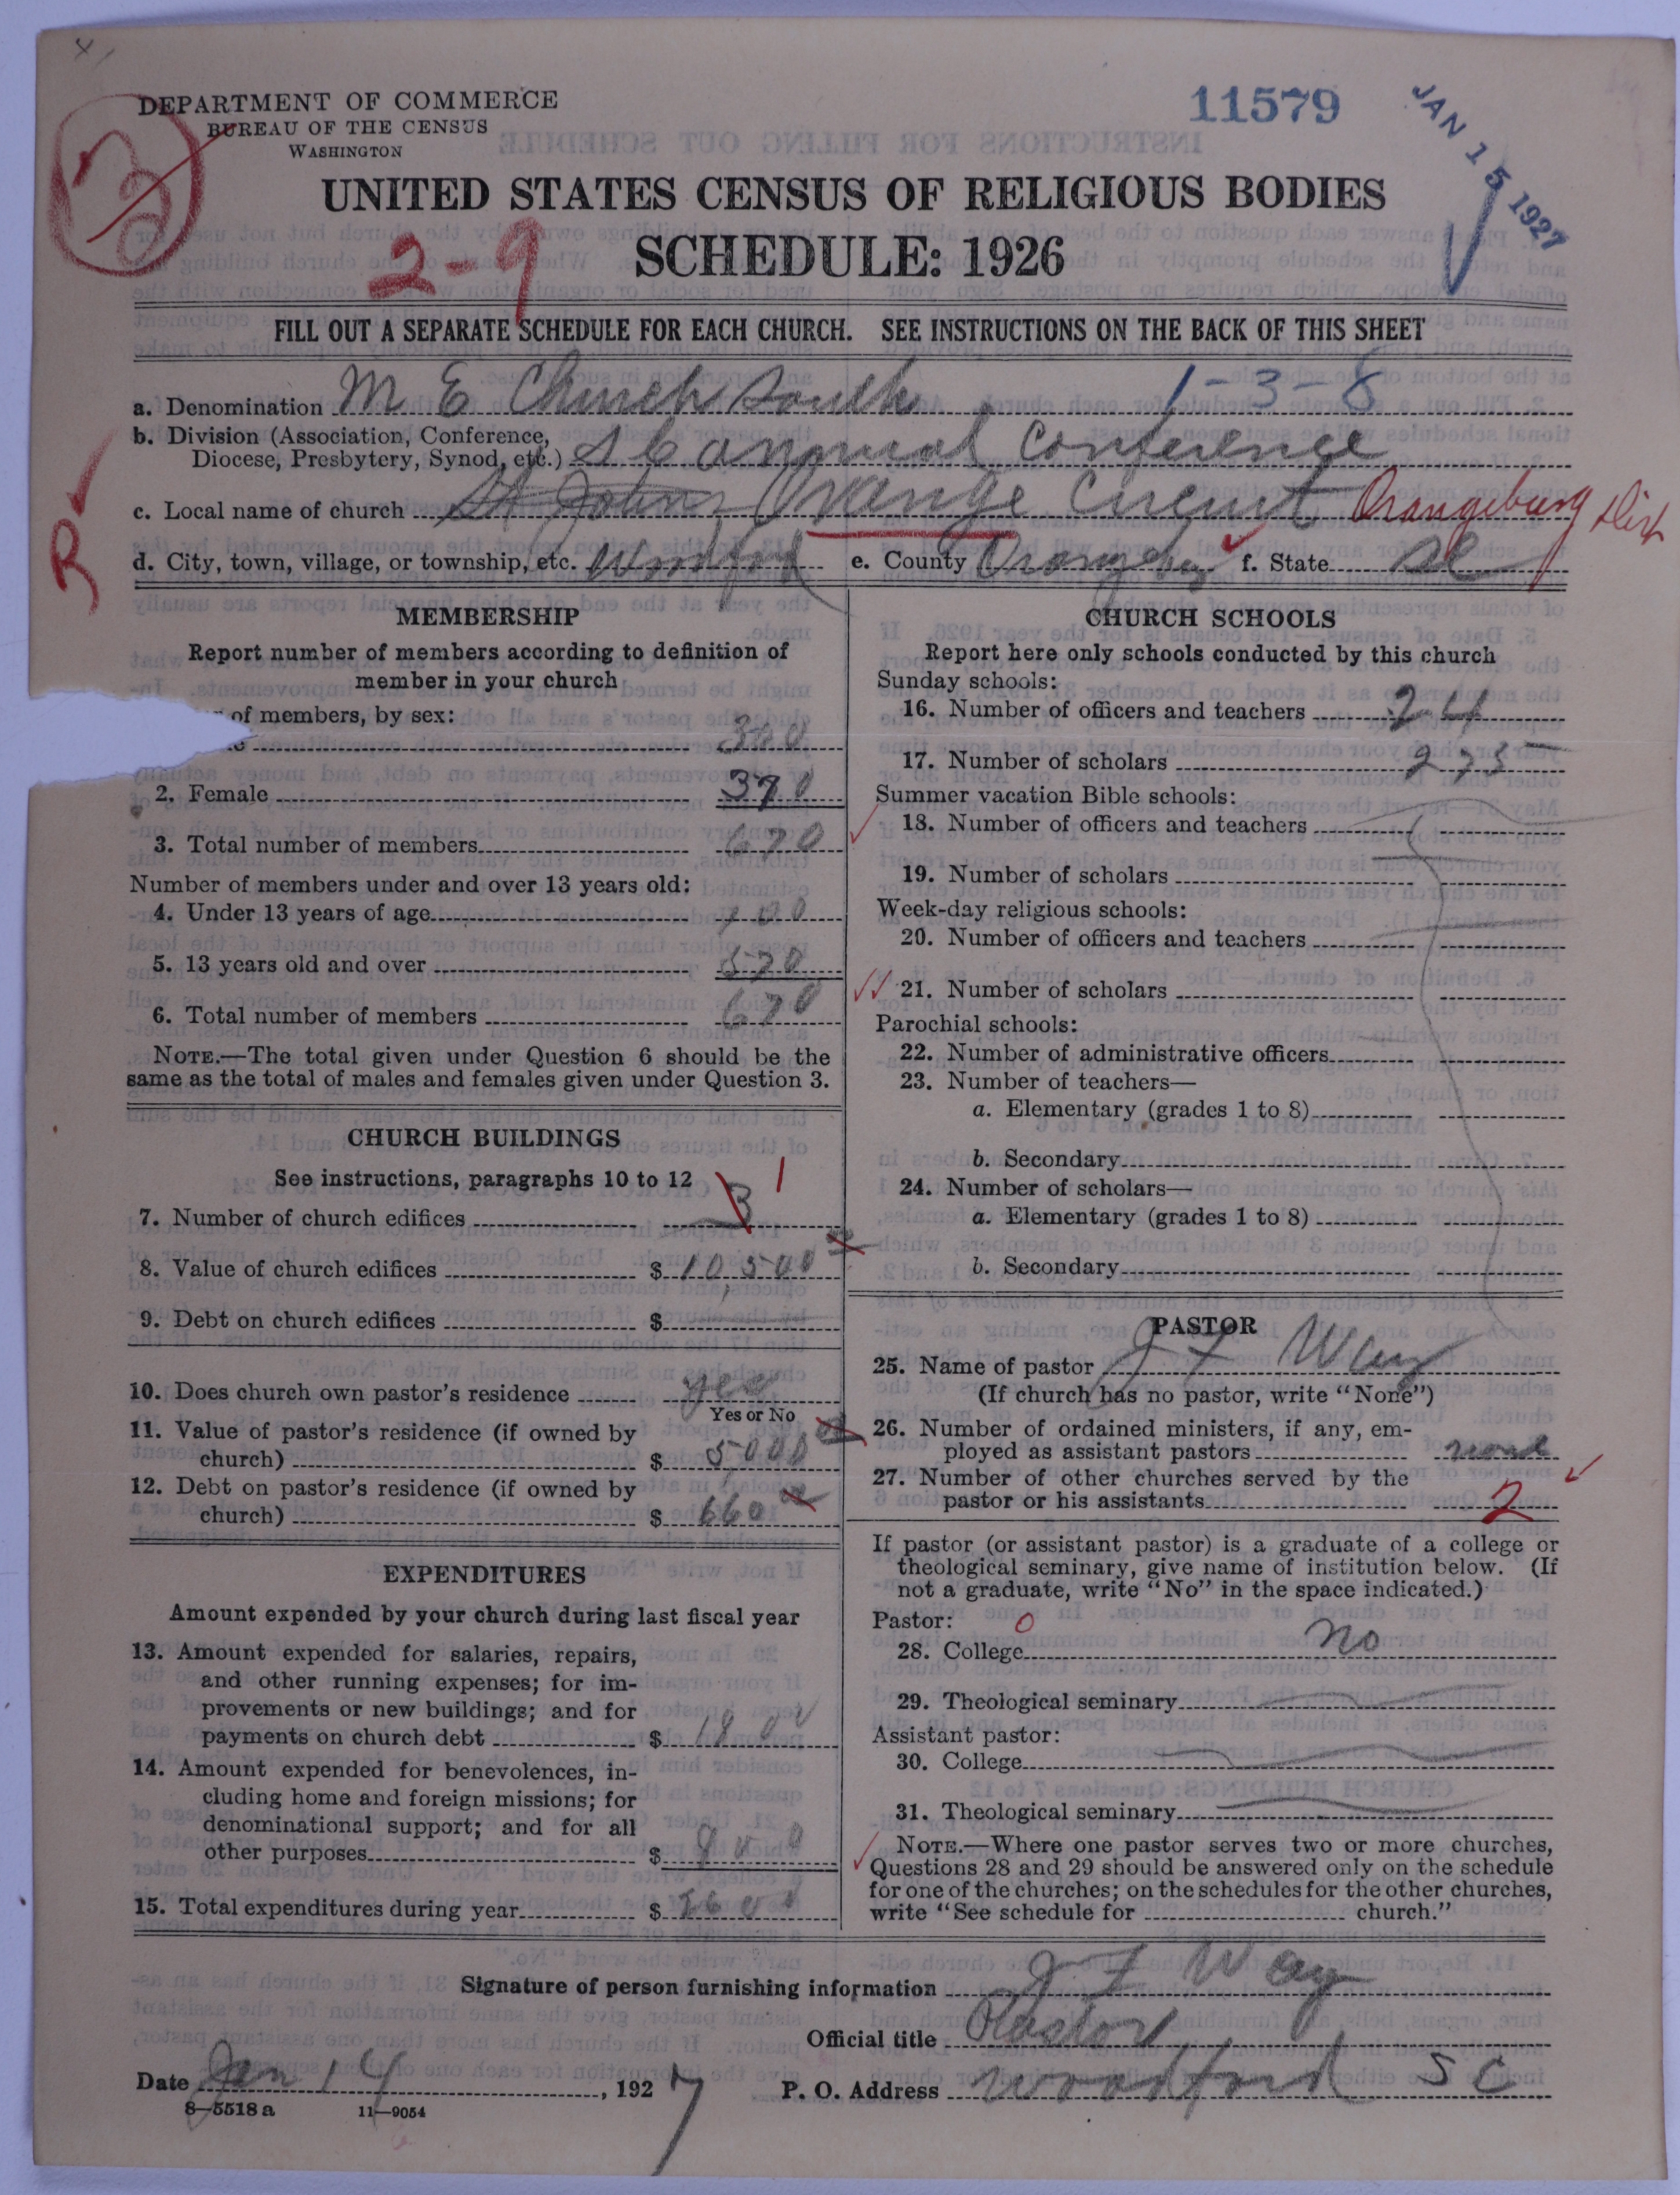 DEPARTMENT OF COMMERCE
BUREAU OF THE CENSUS
WASHINGTON
11579
JAN 15 1927
UNITED STATES CENSUS OF RELIGIOUS BODIES
SCHEDULE: 1926
2-9
FILL OUT A SEPARATE SCHEDULE FOR EACH CHURCH. SEE INSTRUCTIONS ON THE BACK OF THIS SHEET
a. Denomination M E Church South 1-3-8
b. Division (Association, Conference,
Diocese, Presbytery, Synod, etc.) S C annual Conference
c. Local name of church St Johns Orange Circuit Orangeburg Dist
R
d. City, town, village, or township, etc. Woodford e. County Orangeburg f. State SC
MEMBERSHIP
Report number of members according to definition of
member in your church
of members, by sex:
300
2. Female 370
3. Total number of members 670
Number of members under and over 13 years old:
4. Under 13 years of age 100
5. 13 years old and over 570
6. Total number of members 670
NOTE.—The total given under Question 6 should be the
same as the total of males and females given under Question 3.
CHURCH BUILDINGS
See instructions, paragraphs 10 to 12
7. Number of church edifices 3 1
8. Value of church edifices $ 10,500
9. Debt on church edifices $
10. Does church own pastor's residence yes
Yes or No
11. Value of pastor's residence (if owned by
church) $ 5,000
12. Debt on pastor's residence (if owned by
church) $ 660
EXPENDITURES
Amount expended by your church during last fiscal year
13. Amount expended for salaries, repairs,
and other running expenses; for im-
provements or new buildings; and for
payments on church debt $ 1800
14. Amount expended for benevolences, in-
cluding home and foreign missions; for
denominational support; and for all
other purposes $ 800
15. Total expenditures during year $ 2600
CHURCH SCHOOLS
Report here only schools conducted by this church
Sunday schools:
16. Number of officers and teachers 24
17. Number of scholars 275
Summer vacation Bible schools:
18. Number of officers and teachers
19. Number of scholars
Week-day religious schools:
20. Number of officers and teachers
21. Number of scholars
Parochial schools:
22. Number of administrative officers
23. Number of teachers—
a. Elementary (grades 1 to 8)
b. Secondary
24. Number of scholars—
a. Elementary (grades 1 to 8)
b. Secondary
PASTOR
25. Name of pastor J F Way
(If church has no pastor, write "None")
26. Number of ordained ministers, if any, em-
ployed as assistant pastors none
27. Number of other churches served by the
pastor or his assistants 2
If pastor (or assistant pastor) is a graduate of a college or
theological seminary, give name of institution below. (If
not a graduate, write "No" in the space indicated.)
Pastor: 0
28. College No
29. Theological seminary
Assistant pastor:
30. College
31. Theological seminary
NOTE.—Where one pastor serves two or more churches,
Questions 28 and 29 should be answered only on the schedule
for one of the churches; on the schedules for the other churches,
write "See schedule for church."
Signature of person furnishing information J F Way
Official title Pastor
Date Jan 14, 1927 P. O. Address Woodford S C
8—5518a 11—9054